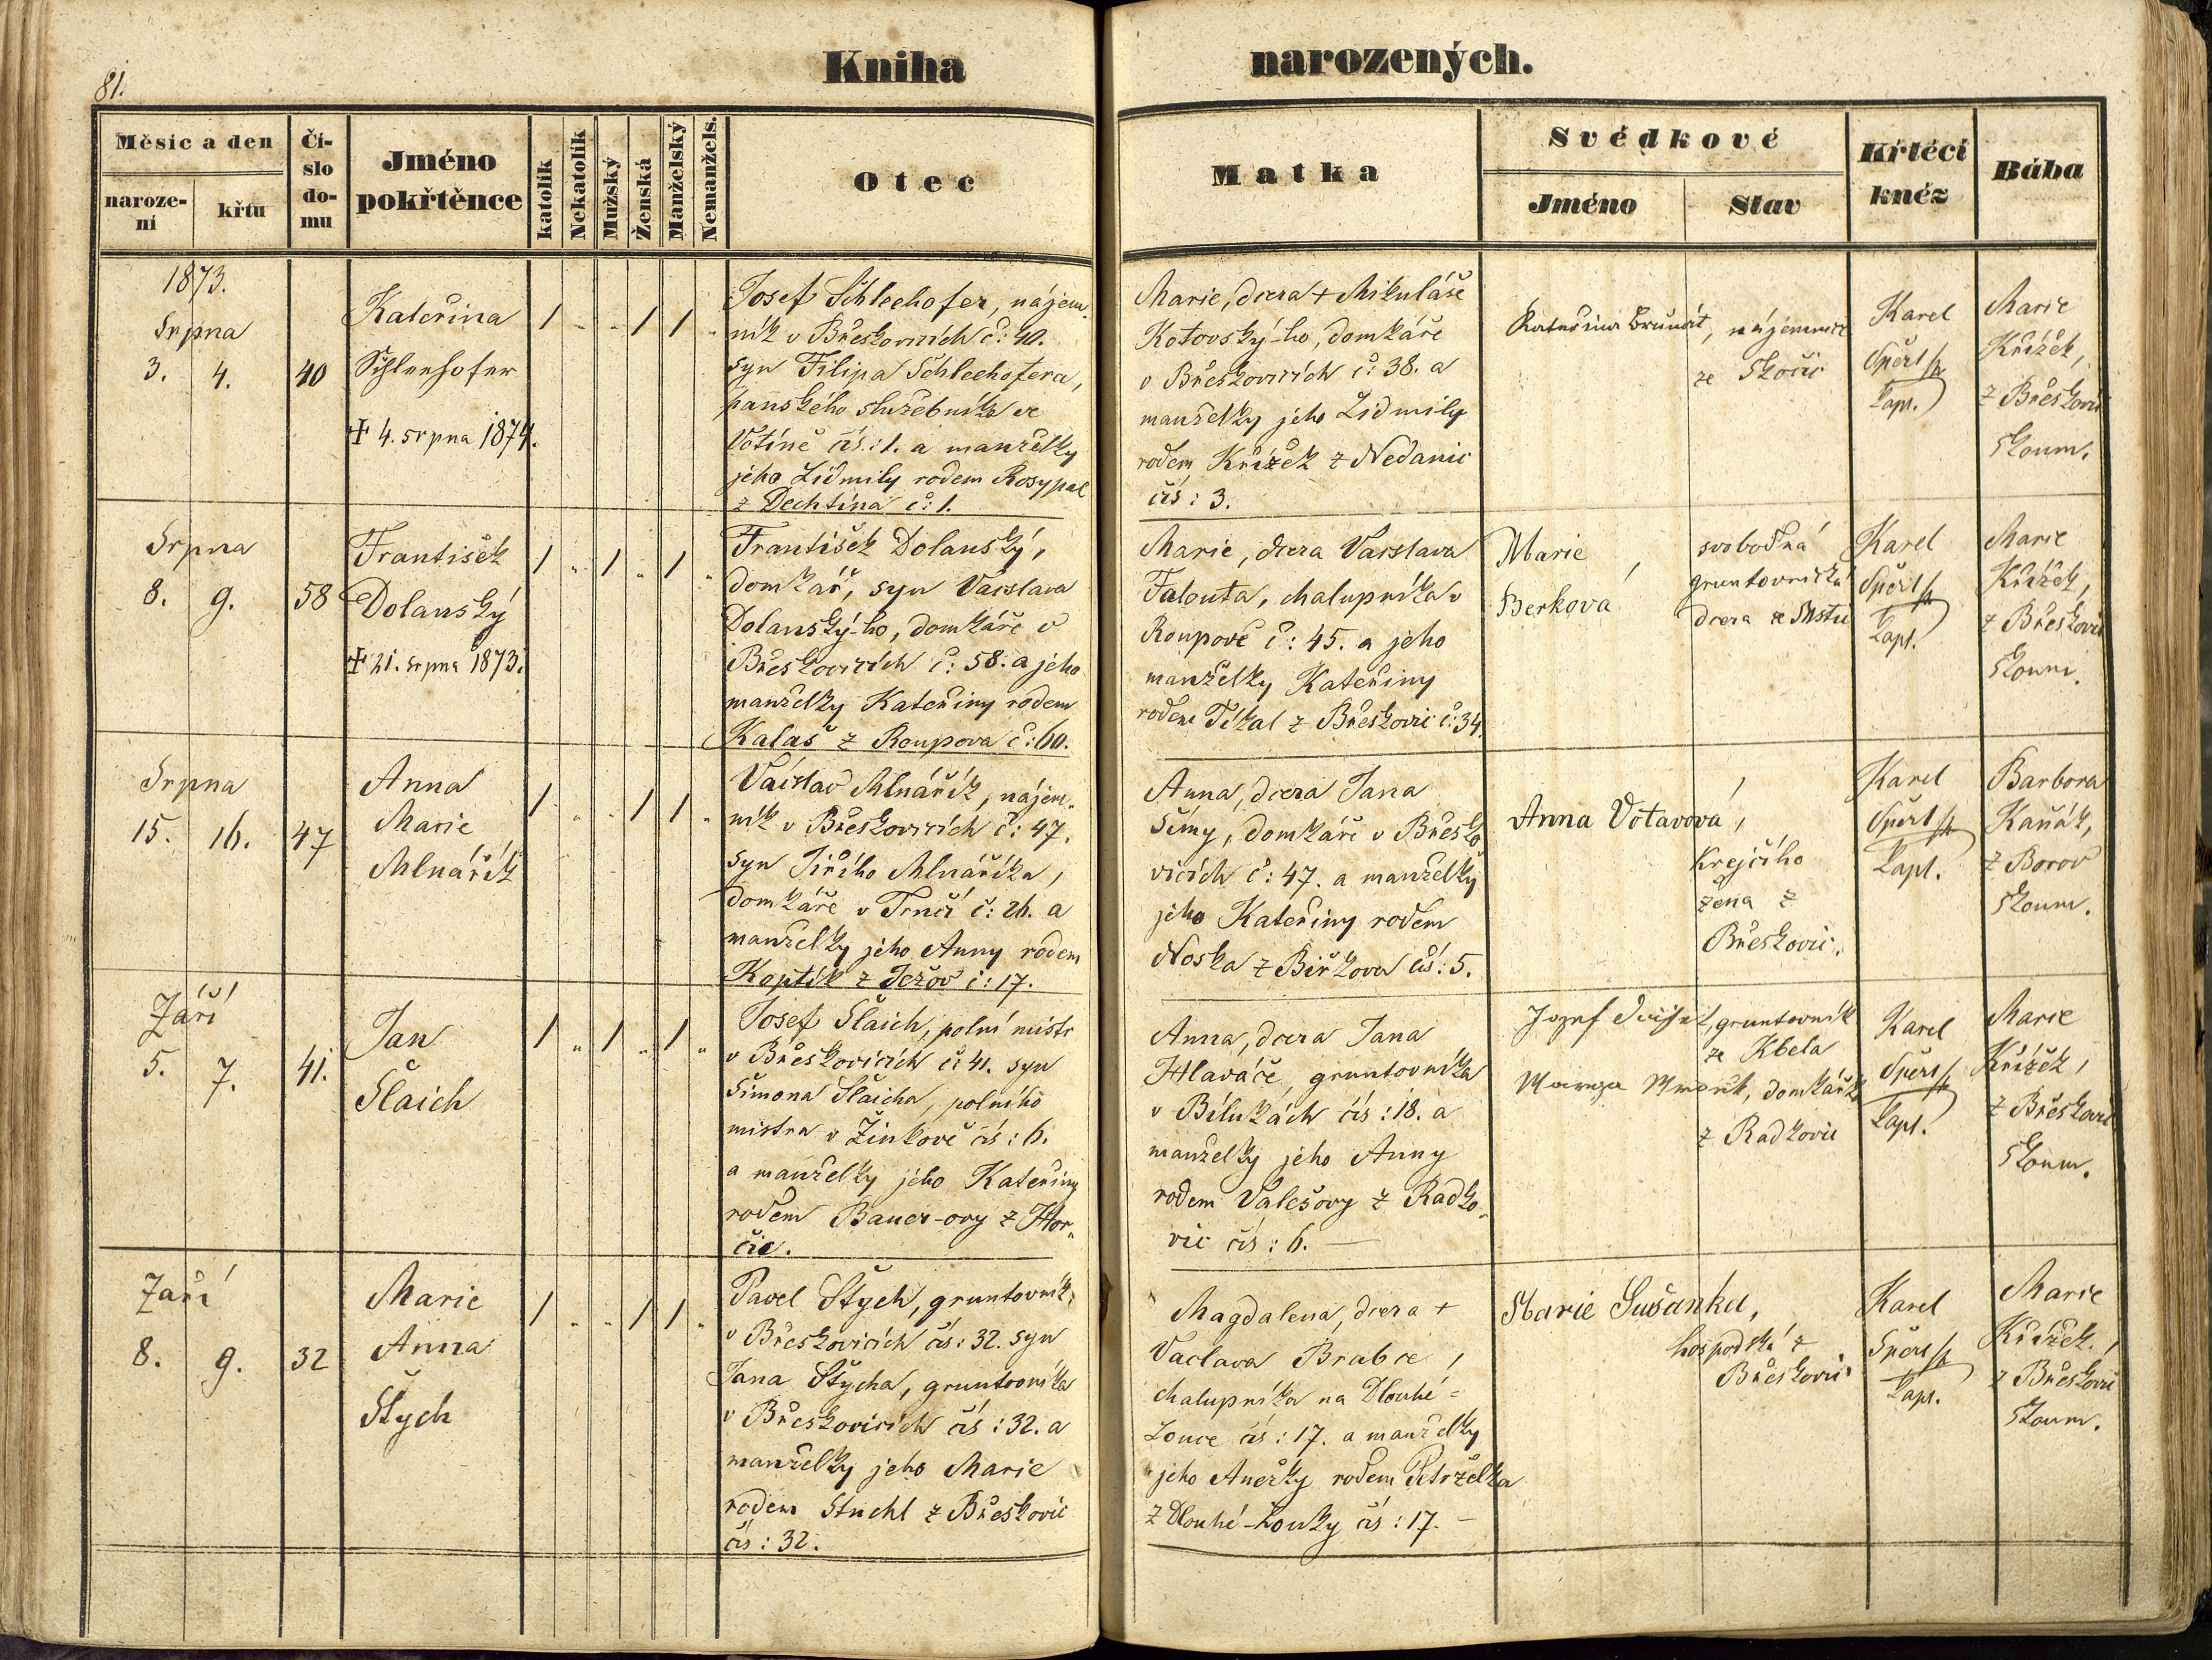 81.
Kniha narozených.
Měsíc a den
naroze-
ní
křtu
Čí-
slo
do-
mu
Jméno
pokřtěnce
katolík
Nekatolík
Mužský
Ženská
Manželský
Nemanžels.
Otec
Matka
Svědkové
Jméno
Stav
Křtěcí
kněz
Bába
1873.
Srpna
3. 4.
40
Kateřina
Schleehofer
✝ 4. srpna 1874.
/ „ „ / / „
Josef Schleehofer, nájem„
ník v Břeskovicích č: 40.
syn Filipa Schleehofera,
panského služebníka ve
Votíně čís: 1. a manželky
jeho Lidmily rodem Rosypal
z Dechtína č: 1.
Marie, dcera + Mikuláše
Kotovský-ho, domkáře
v Břeskovicích č: 38. a
manželky jeho Lidmily
rodem Křížek z Nedanic
čís: 3.
Kateřina
nájemnice
ze Skočic
Karel
Špérl
kapl.
Marie
Křížek,
z Břeskovic
zkoum.
Srpna
8. 9.
58
František
Dolanský
✝ 21. srpna 1873.
/ „ / „ / „
František Dolanský,
domkář, syn Vácslava
Dolanský-ho, domkáře v
Břeskovicích č: 58. a jeho
manželky Kateřiny rodem
Kalaš z Roupova č: 60.
Marie, dcera Vácslava
Falouta, chalupníka v
Roupově č: 45. a jeho
manželky Kateřiny
rodem Tíkal z Břeskovic č: 34.
Marie
Berková
svobodná
gruntovnická
dcera
Karel
Špérl
kapl.
Marie
Křížek,
z Břeskovic
zkoum.
Srpna
15. 16.
47
Anna
Marie
Mlnářík
/ „ „ / / „
Václav Mlnářík, nájem„
ník v Břeskovicích č: 47,
syn Jiřího Mlnáříka,
domkáře v Trnčí č: 26. a
manželky jeho Anny rodem
Koptík z Ježov č: 17.
Anna, dcera Jana
Šímy, domkáře v Břesko
vicích č: 47. a manželky
jeho Kateřiny rodem
Noska z Biřkova čís: 5.
Anna Votavová,
krejčího
žena z
Břeskovic.
Karel
Špérl
kapl.
Barbora
Kaňák,
z Borov
zkoum.
Září
5. 7.
41.
Jan
Šlaich
/ „ / „ / „
Josef Šlaich, polní mistr
v Břeskovicích č: 41. syn
Šimona Šlaicha, polního
mistra v Žinkově čís: 6.
a manželky jeho Kateřiny
rodem Bauer-ovy z Hor„
čic.
Anna, dcera Jana
Hlaváče, gruntovníka
v Bílukách čís: 18. a
manželky jeho Anny
rodem Valešovy z Radko„
vic čís: 6. —
Josef
gruntovník
ze Kbela
domkářka
z Radkovic
Karel
Špérl
kapl.
Marie
Křížek,
z Břeskovic
zkoum.
Září
8. 9.
32
Marie
Anna
Štych
/ „ „ / / „
Pavel Štych, gruntovník,
v Břeskovicích čís: 32. syn
Jana Štycha, gruntovníka
v Břeskovicích čís: 32. a
manželky jeho Marie
rodem Stuchl z Břeskovic
čís: 32.
Magdalena, dcera +
Vaclava Brabce,
chalupníka na Dlouhé-
Louce čís: 17. a manželky
jeho Anežky rodem Petrželka
z Dlouhé-Louky čís: 17. —
Marie Sušanka,
hospodská z
Břeskovic
Karel
Špérl
kapl.
Marie
Křížek,
z Břeskovic
zkoum.